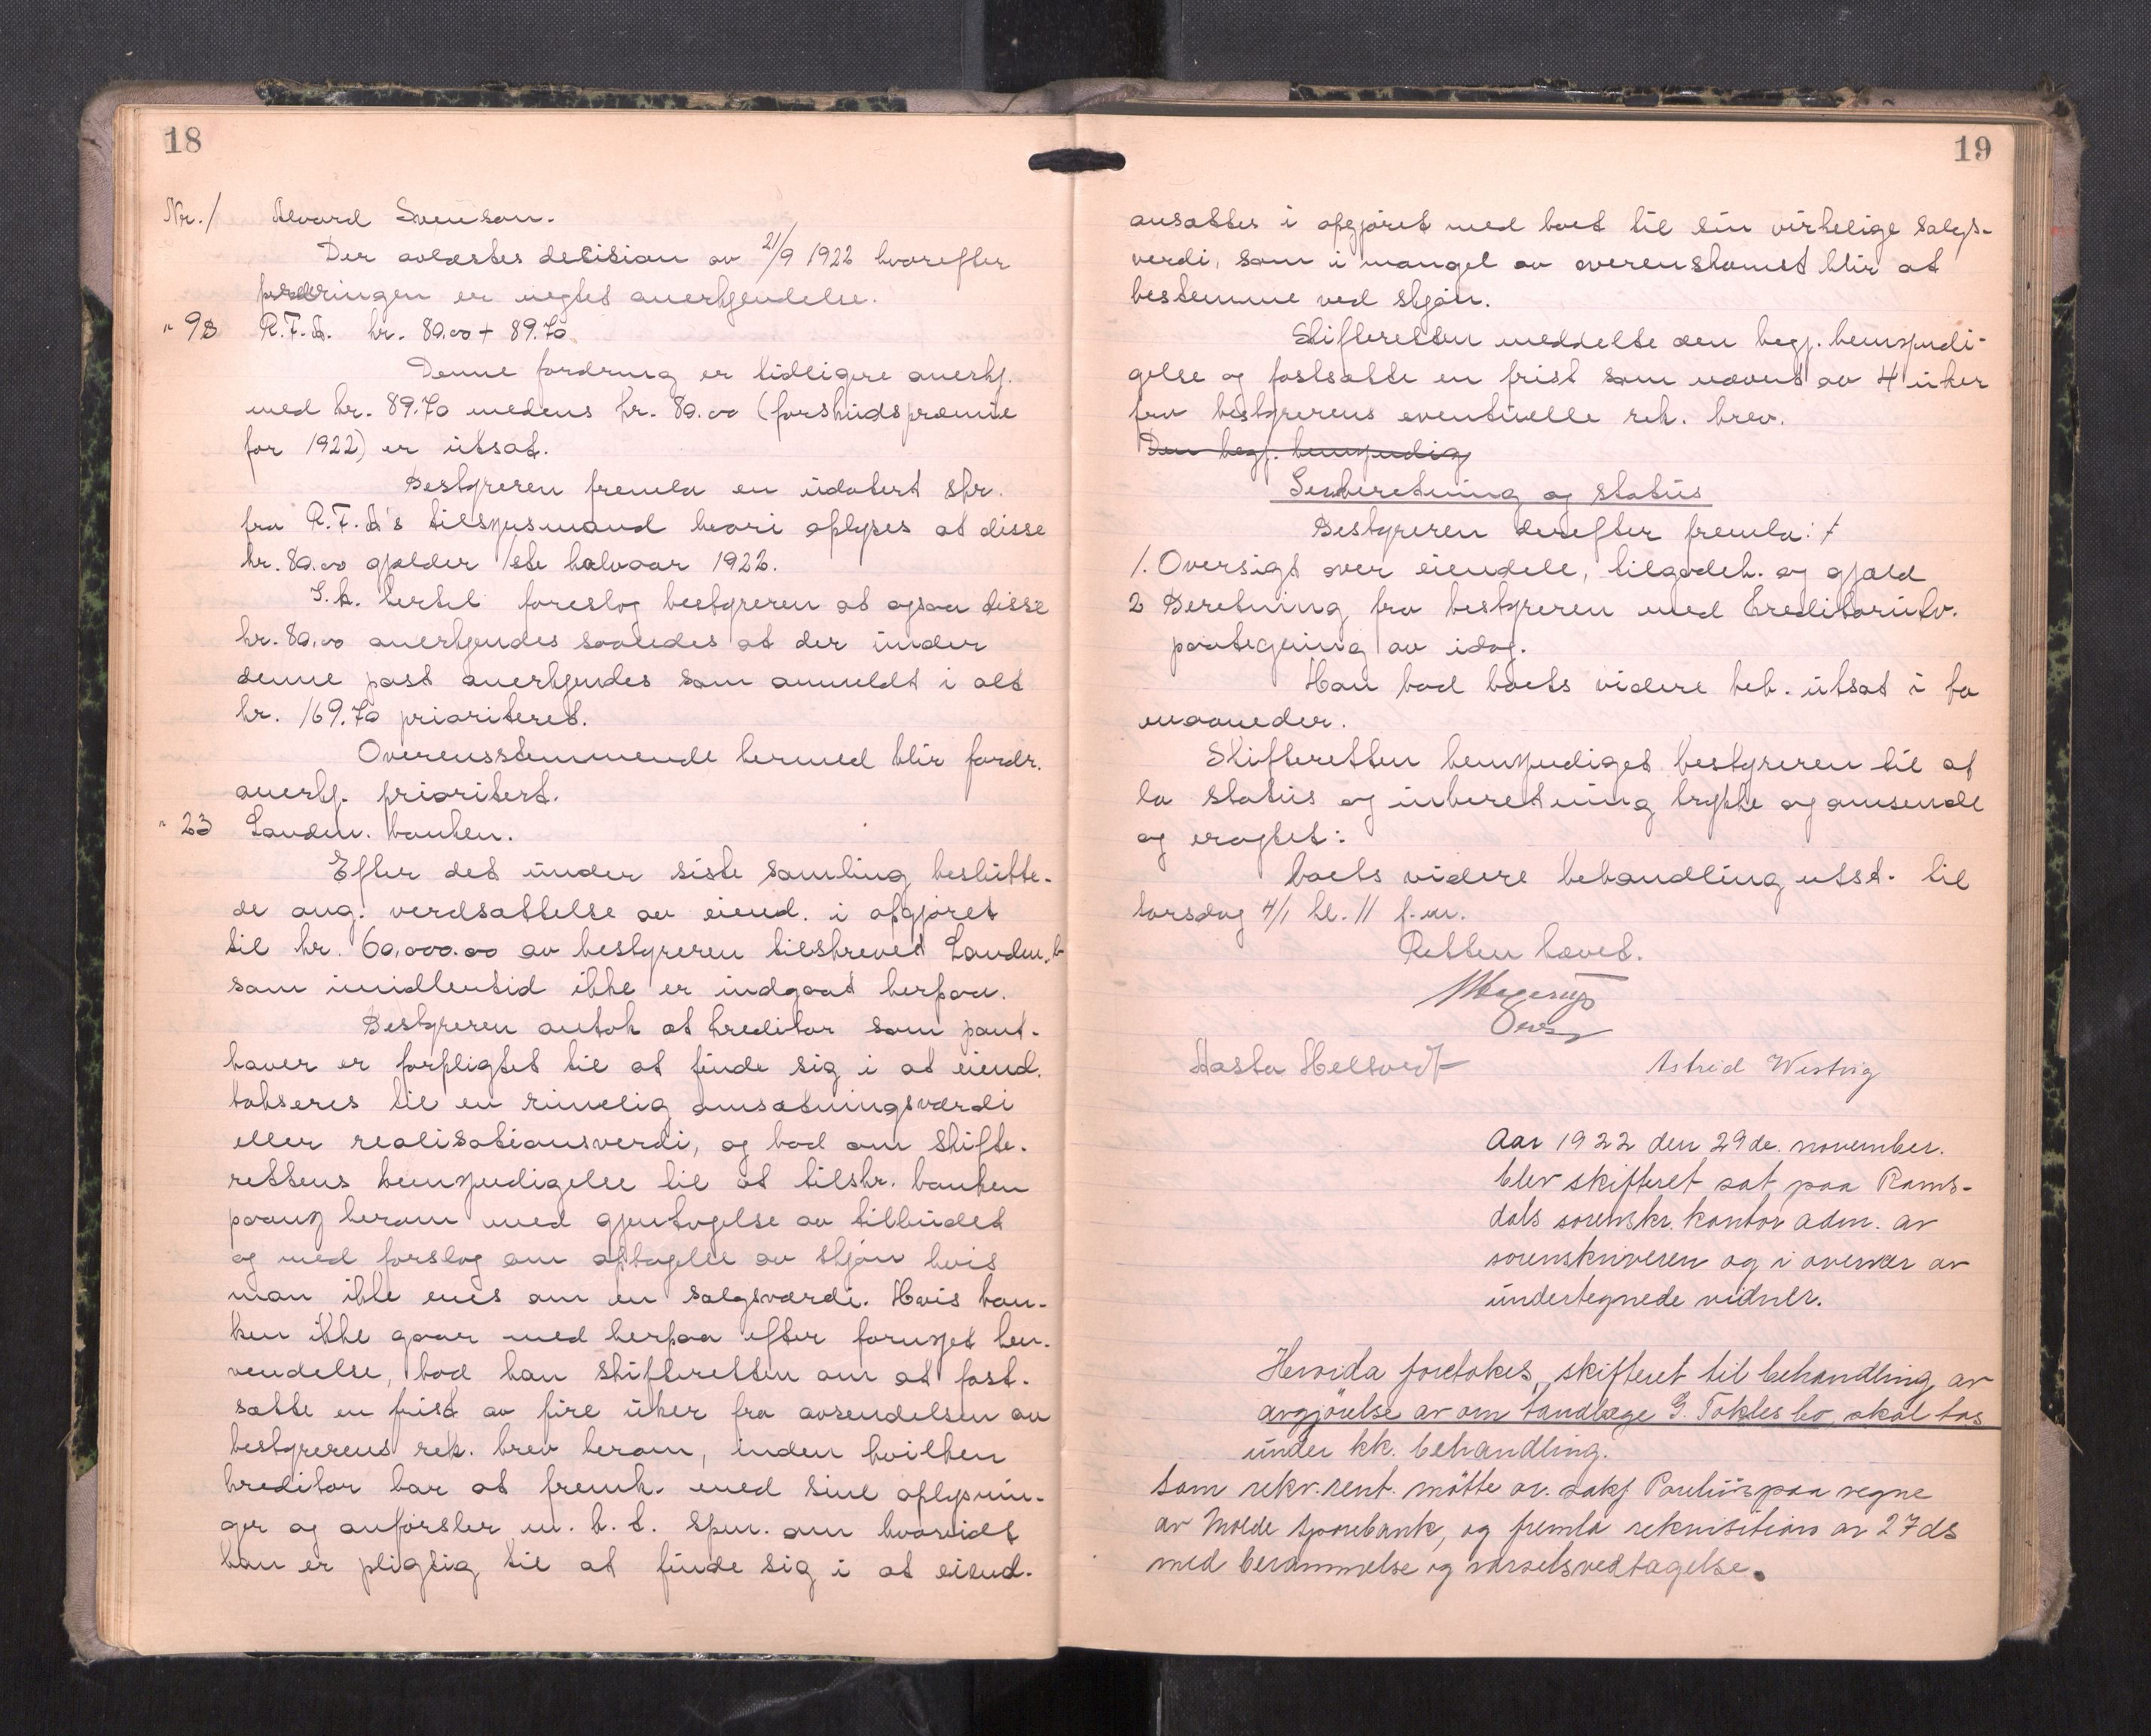 18
Nr. 1 Alvard Svenson.
Der avlæstes decision av 21/9 1922 hvorefter
fordringen er negtet anerkjendelse.
" 93 R.T.A. kr. 80.00 + 89.70
Denne fordring er tidligere anerkj.
med kr. 89.70 medens kr. 80.00 (forskudspræmie
for 1922) er utsat.
Bestyreren fremla en udatert skr.
fra R.T.A's tilsynsmand hvori oplyses at disse
kr. 80.00 gjælder 1ste halvaar 1922.
I.h. hertil foreslog bestyreren at ogsaa disse
kr. 80.00 anerkjendes saaledes at der under
denne post anerkjendes som anmeldt i alt
kr. 169.70 prioriteret.
Overensstemmende hermed blir fordr.
anerkj. prioritert.
" 23 Landm. banken.
Efter det under siste samling beslutte-
de ang. verdsættelse av eiend. i opgjøret
til kr. 60,000.00 av bestyreren tilskrevet Landm. b
som imidlertid ikke er indgaat herpaa.
Bestyreren antok at kreditor som pant-
haver er forpligtet til at finde sig i at eiend.
takseres til en rimelig omsætningsværdi
eller realisationsverdi, og bad om skifte-
rettens bemyndigelse til at tilskr. banken
paany herom med gjentagelse av tilbudet
og med forslag om optagelse av skjøn hvis
man ikke enes om en salgsværdi. Hvis ban-
ken ikke gaar med herpaa efter fornyet hen-
vendelse, bad han skifteretten om at fast-
sætte en frist av fire uker fra avsendelsen av
bestyrerens rek. brev herom, inden hvilken
kreditor har at fremk. med sine oplysnin-
ger og anførsler m. h. t. spm. om hvorvidt
han er pligtig til at finde sig i at eiend.
19
ansættes i opgjøret med boet til sin virkelige salgs-
verdi, som i mangel av overenskomst blir at
bestemme ved skjøn.
Skifteretten meddelte den begj. bemyndi-
gelse og fastsatte en frist som nævnt av 4 uker
fra bestyrerens eventuelle rek. brev.
Den begj. bemyndig
Indberetning og status
Bestyreren derefter fremla:
1. Oversigt over eiendele, tilgodeh. og gjæld
2 Beretning fra bestyreren med Creditorutv.
paategning av idag.
Han bad boets videre beh. utsat i to
maaneder.
Skifteretten bemyndiget bestyreren til at
la status og inberetning trykke og omsende
og eragtet:
boets videre behandling utst. til
torsdag 4/1 kl. 11 f.m.
Retten hævet.
Hagerup
Aasta Helsvedt Astrid Westvig
Aar 1922 den 29de. november.
blev skifteret sat paa Roms-
dals sorenskr. kontor adm. av
sorenskriveren og i overvær av
undertegnede vidner.
Hervida foretokes, skifteret til behandling av
avgjörelse av om tandlæge G. Tokles bo, skal tas
under kk. behandling.
Som rekv. rent. mötte o.r. sakf Paulius paa vegne
av Molde Sparebank, og fremla rekvisition av 27 ds
med berammelse og varselsvedtagelse.